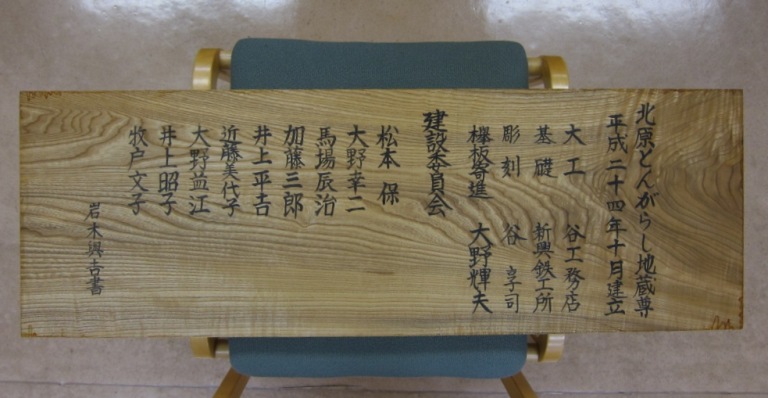 北原とんがらし地蔵尊
平成二十四年十月建立
大工 谷工務店
基礎 新興鉄工所
彫刻 谷享司
欅板寄進 大野輝夫
建設委員会
松本保
大野幸二
馬場辰治
加藤三郎
井上平吉
近藤美代子
大野益江
井上昭子
牧戸文子
岩木興吉書